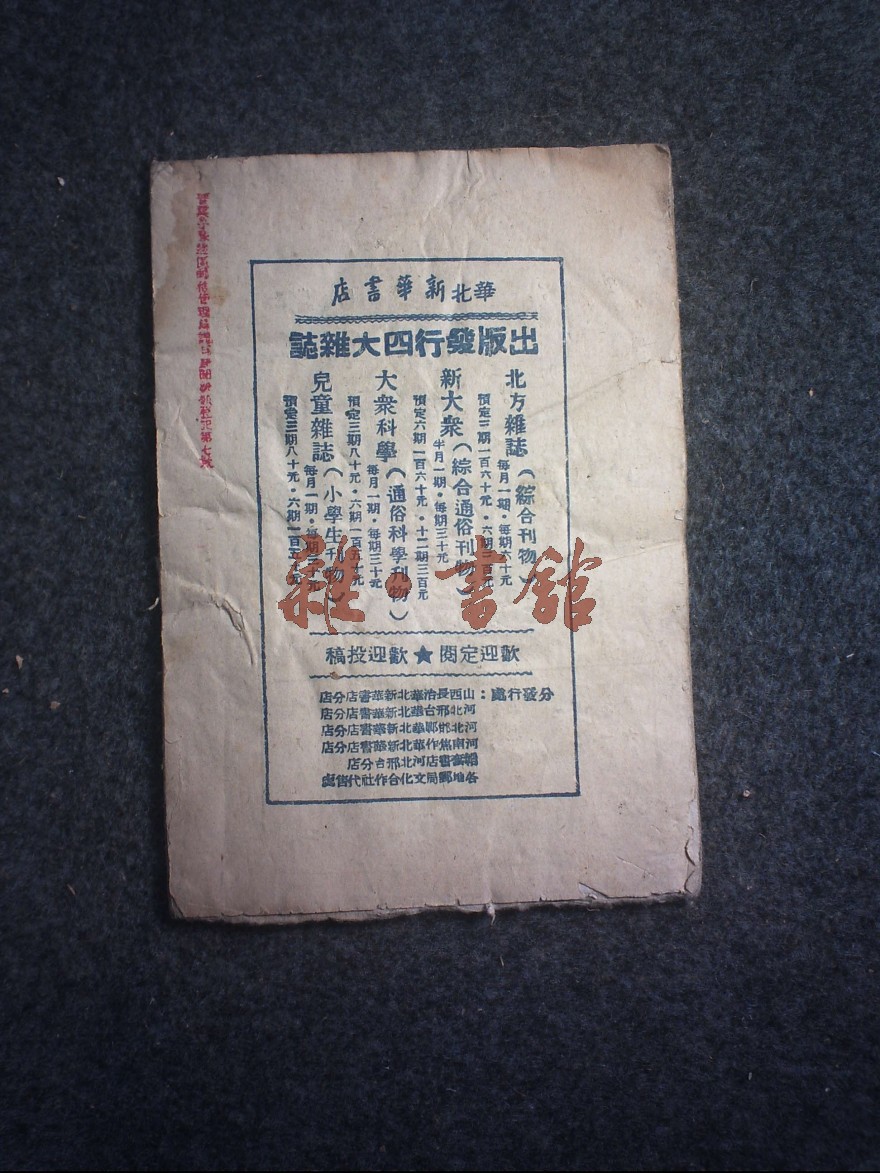 華北新華書店
出版發行四大雜誌
北方雜誌（綜合刊物）
每月一期・每期六十元
預定三期一百六十元・六期三百元
新大衆（綜合通俗刊物）
半月一期・每期三十元
預定六期一百六十元・十二期三百元
大衆科學（通俗科學刊物）
每月一期・每期三十元
預定三期八十元・六期一百五十元
兒童雜誌（小學生刊物）
每月一期・每期三十元
預定三期八十元・六期一百五十元
歡迎定閱★歡迎投稿
分發行處：山西長治華北新華書店分店
河北邢台華北新華書店分店
河北邯鄲華北新華書店分店
河南焦作華北新華書店分店
韜奮書店河北邢台分店
各地郵局文化合作社代售處
第七號
雜・書館